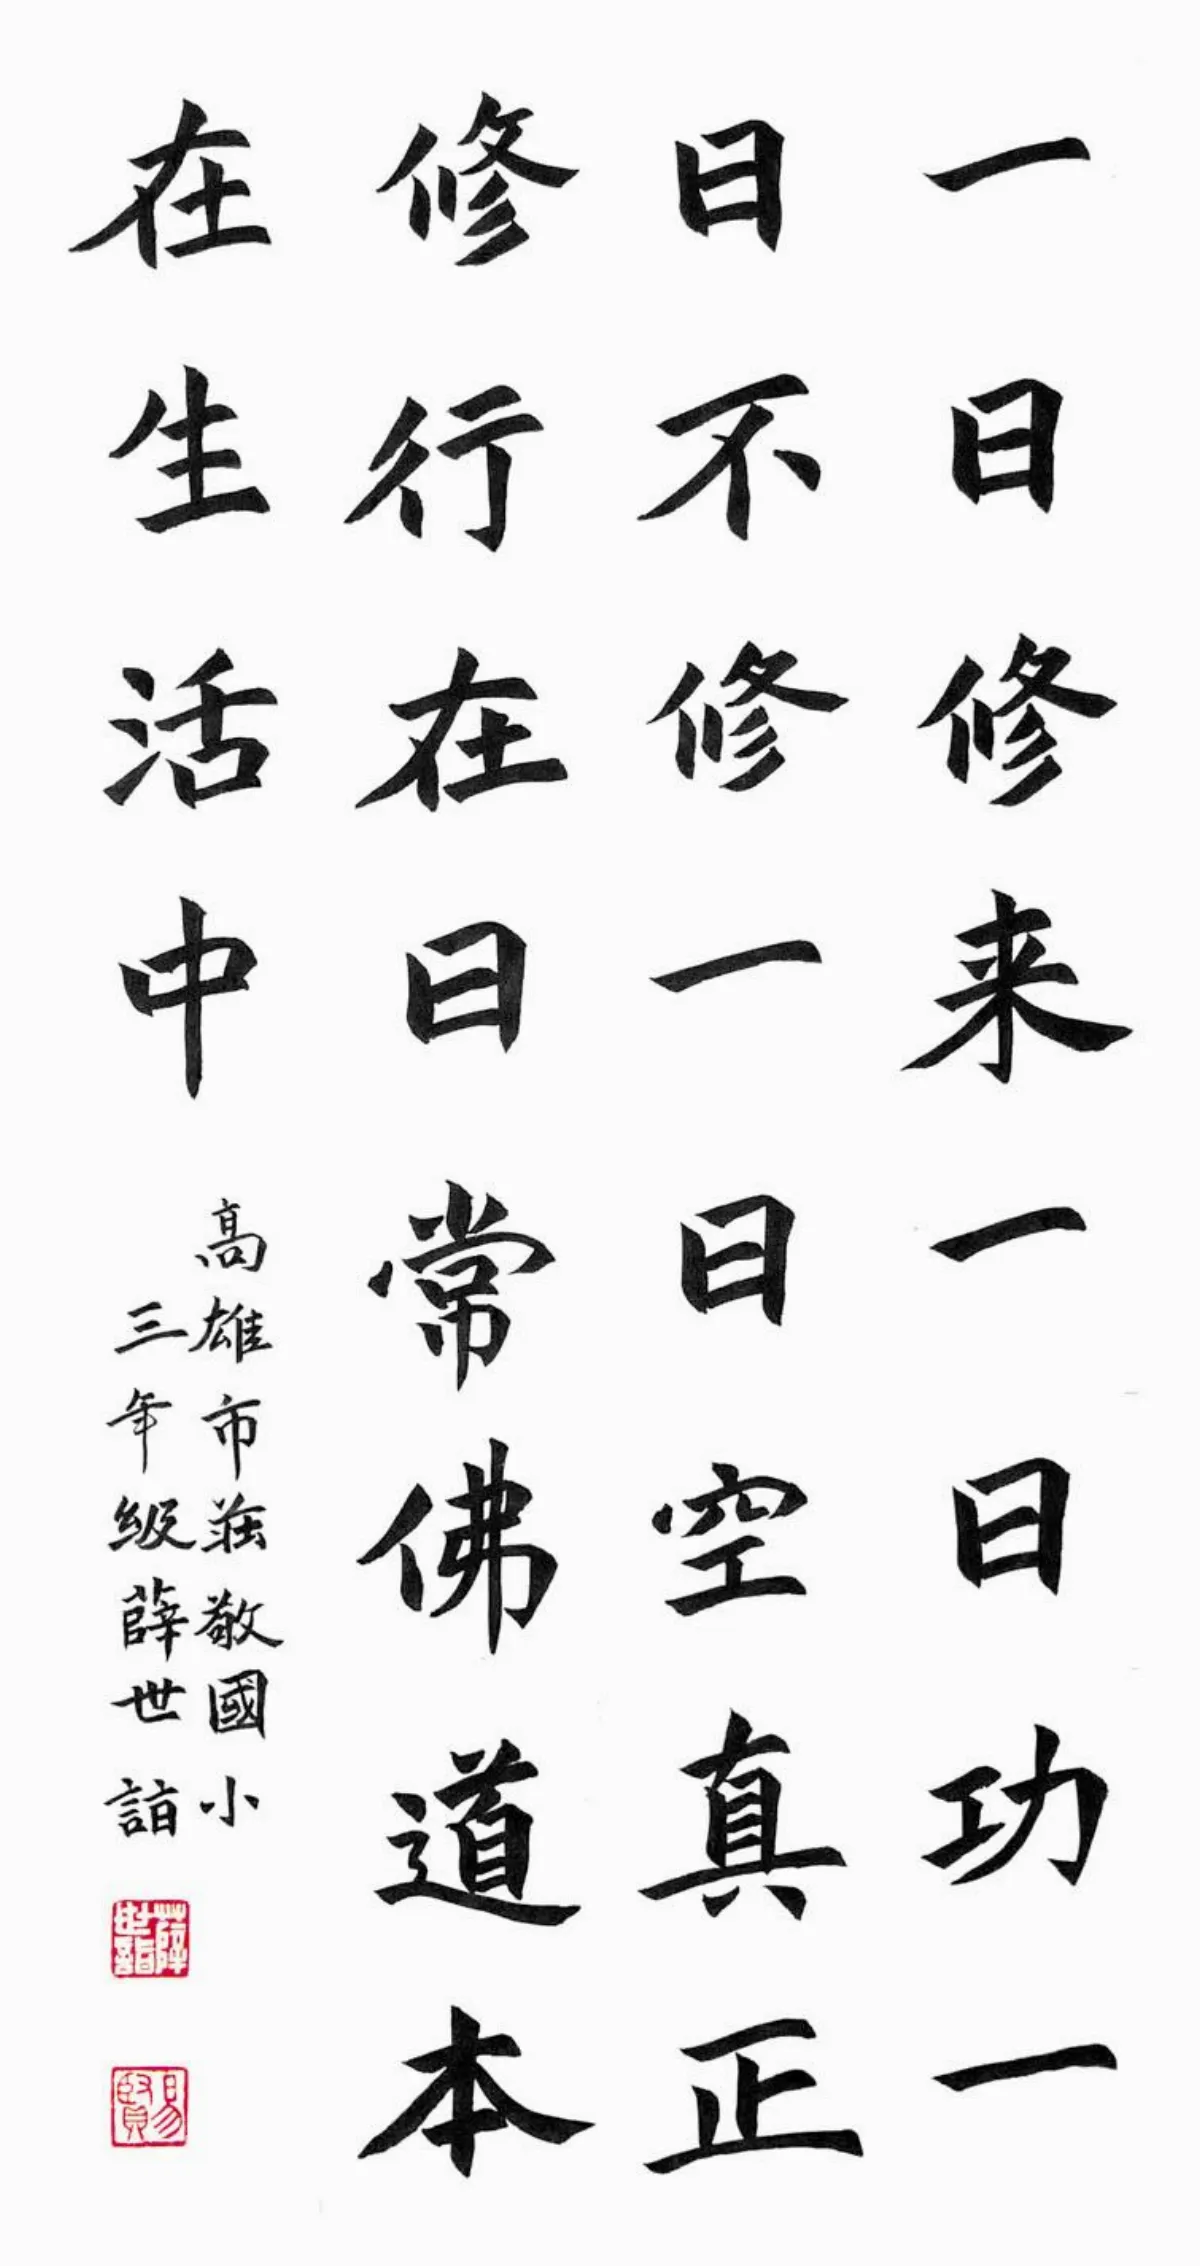 一日修来一日功一
日不修一日空真正
修行在日常佛道本
在生活中
高雄市莊敬國小
三年級薛世詣
薛世詣
易賢